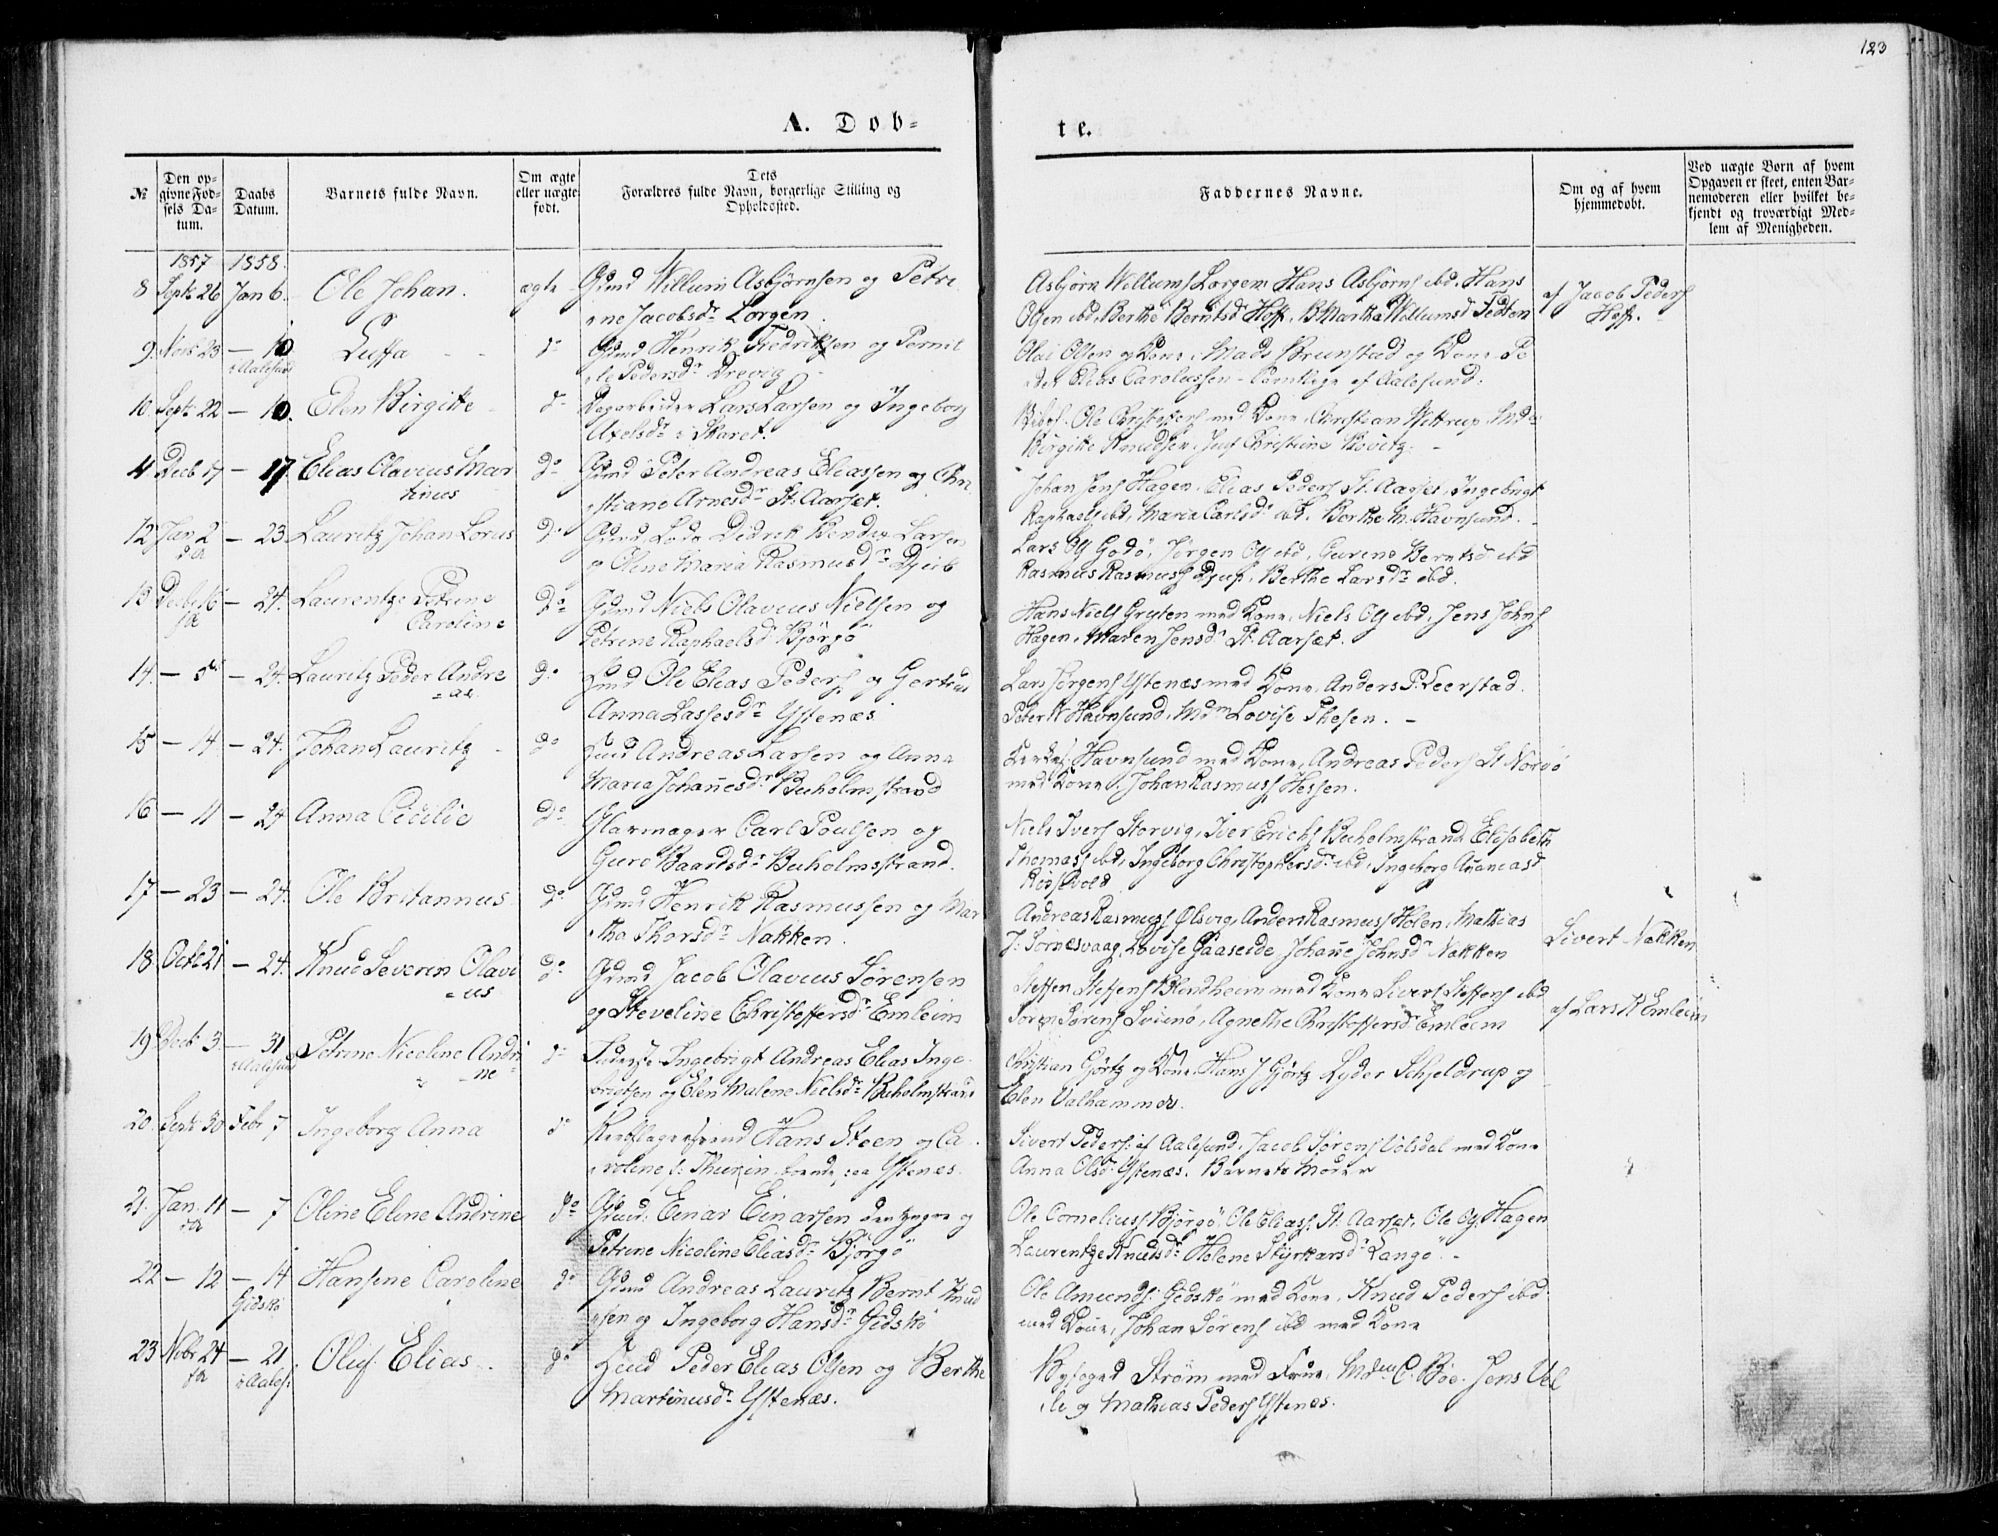 123
A. Døb-
te.
№
Den op-
givne Fød-
sels Da-
tum.
Daabs
Datum.
Barnets fulde Navn.
Om ægte
eller uægte
født.
Dets
Forældres fulde Navn, borgerlige Stilling og
Opholdssted.
Faddernes Navne.
Om og af hvem
hjemmedøbt.
Ved uægte Børn af hvem
Opgaven er skeet, enten Bar-
nemoderen eller hvilket be-
kjendt og troværdigt Med-
lem af Menigheden.
1857 1858.
8 Septr 26 Jan 6. Ole Johan. ægte Gmd Willum Asbjørnsen og Petri
ne Jacobsdr Lorgen.
Asbjørn Willums Lorgen, Hans Asbjørns ibd, Hans
Olsen ibd, Berthe Berntsd Hoff, B Martha Willumsd Tedten
af Jacob Peders
Hoff.
9 Novb 23 — 10 Luffa do Gmd Henrik Fredriksen og Pernil
i Aalesund
le Pedersdr Drevig
Olai Olsen og Kone, Mads Brunstad og Kone, Pe
der Elias Carolussen - samtlige af Aalesund.
10. Septr 22 — 10. Elen Birgitte do Dagarbeider Lars Larsen og Ingeborg
Axelsdr i Skaret.
Ole Christophers med Kone, Christian Wettrup,
Birgitte Knudsen, Christine Rovitz.
11 Decb 17 — 17. Elias Olavius Mar do Gmd Peter Andreas Eliassen og Chri
tinus
stiane Arnesdr St. Aarset.
Johan Jens Hagen, Elias Peders St. Aarset, Ingebrigt
Raphaels ibd, Maria Carlsdr ibd. Berthe M. Havnsund.
12 Jan 2 — 23 Lauritz Johan Lorus do Gmd Lods Didrik Bendix Larsen
d A
og Oline Maria Rasmusdr Djeib
Lars Ols Godø, Jørgen Ols ibd, Gurine Berntsd ibd
Rasmus Rasmuss Djup, Berthe Larsdr ibd.
13 Decbr 16 — 24. Laurentze Petrine do Gmd Niels Olavius Nielsen og
f A
Caroline
Petrine Raphaelsd Bjørgø
Hans Niels Gryten med Kone, Niels Ols ibd, Jens Johns
Hagen, Maren Jensdr St. Aarset.
14. — — 24. Lauritz Peder Andre do Gmd Ole Elias Peders og Gertrud
as
Anna Lassesdr Ystenæs
Lars Jørgens Ystenæs med Kone, Anders P. Leerstad.
Peter W Havnsund, Mdm Lovise Thesen.
15 — 14 — 24. Johan Lauritz do Andreas Larsen og Anna
Maria Johannesdr Buholmstrand
Havnsund med Kone, Andreas Peders St Norvø
med Kone. Johan Rasmuss Hessen.
16 — 11 — 24 Anna Cicilie do Glarmager Carl Poulsen og
Guro Baardsdr Buholmsstrand.
Niels Ivers Storvig, Iver Erichs Buholmstrand Elisabeth
Thomass ibd, Ingeborg Christophersdr ibd, Ingeborg Ananiasd
Røssevold
17 — 23 — 24. Ole Britannus do Gmd Henrik Rasmussen og Mar
tha Thorsdr Nakken.
Andreas Rasmuss Ølsvig, Anders Rasmuss Holen, Mathias
J. Sørnesvaag, Lovise Gaaseide Johanne Johnsd Nakken
Sivert Nakken
18 Octb 21 — 24. Knud Severin Olavi do Gmd Jacob Olavius Sørensen
us
og Steveline Christeffersdr Emleim
Steffen Steffens Blindheim med Kone Sivert Steffens ibd
Soren Sørens Svinø, Agnethe Christoffersd Emleim
af Lars K Emleim
19 Decb 3. — 31 Petrine Nicoline Andri do Ingebrigt Andreas Elias Inge
i Aalesund
ne
brigtsen og Elen Malene Nielsdr Buholmstrand
Christian Gjørtz og Kone, Hans J Gjørtz Lyder Schjeldrup og
Elen Valhammer.
20. Septr 30 Febr 7 Ingeborg Anna do Hans Steen og Ca
roline f: Thurin, boende paa Ystenæs.
Sivert Peders: af Aalesund, Jacob Sørens Volsdal med Kone
Anna Olsd: Ystenæs. Barnets Moder
21. Jan. 11 — 7 Oline Eline Andrine do Gmd: Einar Einarsen den yngre og
d A
Petrine Nicoline Eliasdr Bjørgø
Ole Corneliuss Bjørgø, Ole Eliass. St. Aarset, Ole Ols. Hagen
Laurentze Knudsdr Helene Styrkarsdr Langø.
22 — 12 — 14 Hansine Caroline do Gmd Andreas Lauritz Bernt Knud
Gidskø
sen og Ingeborg Hansdr Gidskø
Ole Amunds: Gidskø med Kone, Knud Peders ibd.
med Kone, Johan Sørens ibd med Kone
23 Nvbr 24 — 21 Oluf Elias do Peder Elias Olsen og Berthe
f A
i Aales:
Martinusdr Ystenæs.
Byfoged Strøm med Frue, Mdm C. Bøe. Jens Vel
le og Mathias Peders Ystenæs.